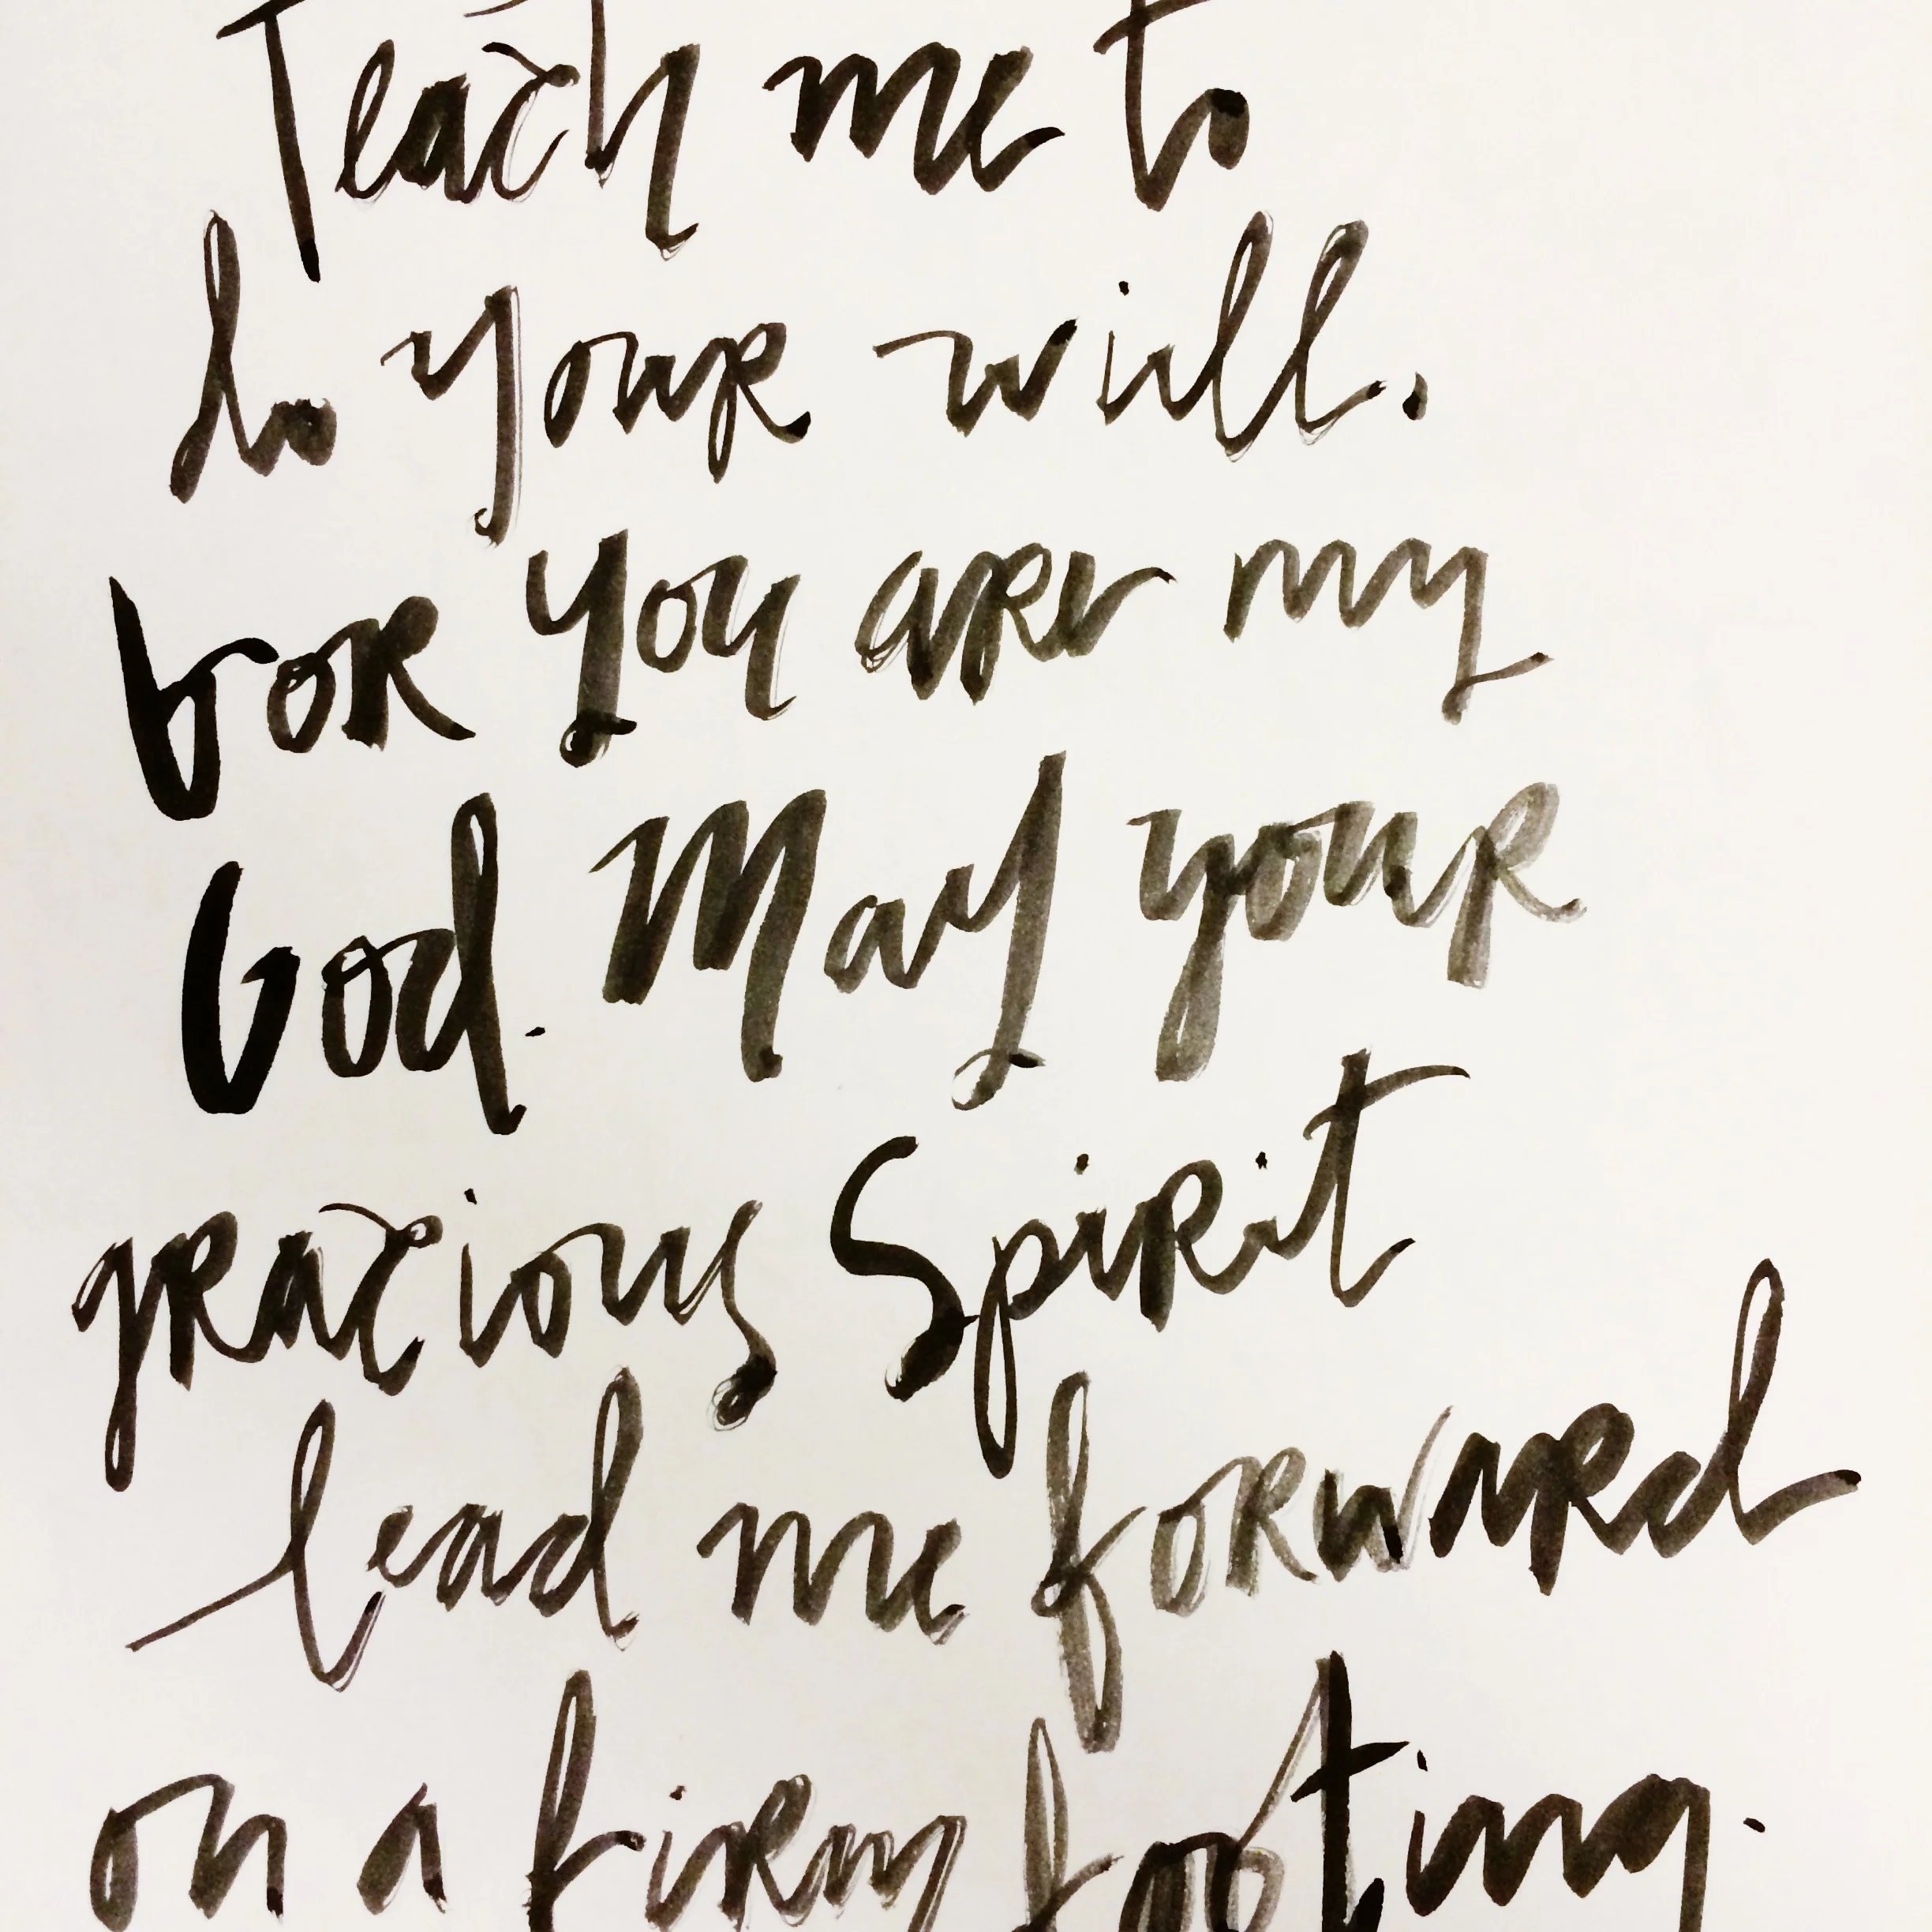 Teach me to
do your will.
for you are my
God. May your
gracious Spirit
lead me forward
on a firm footing.